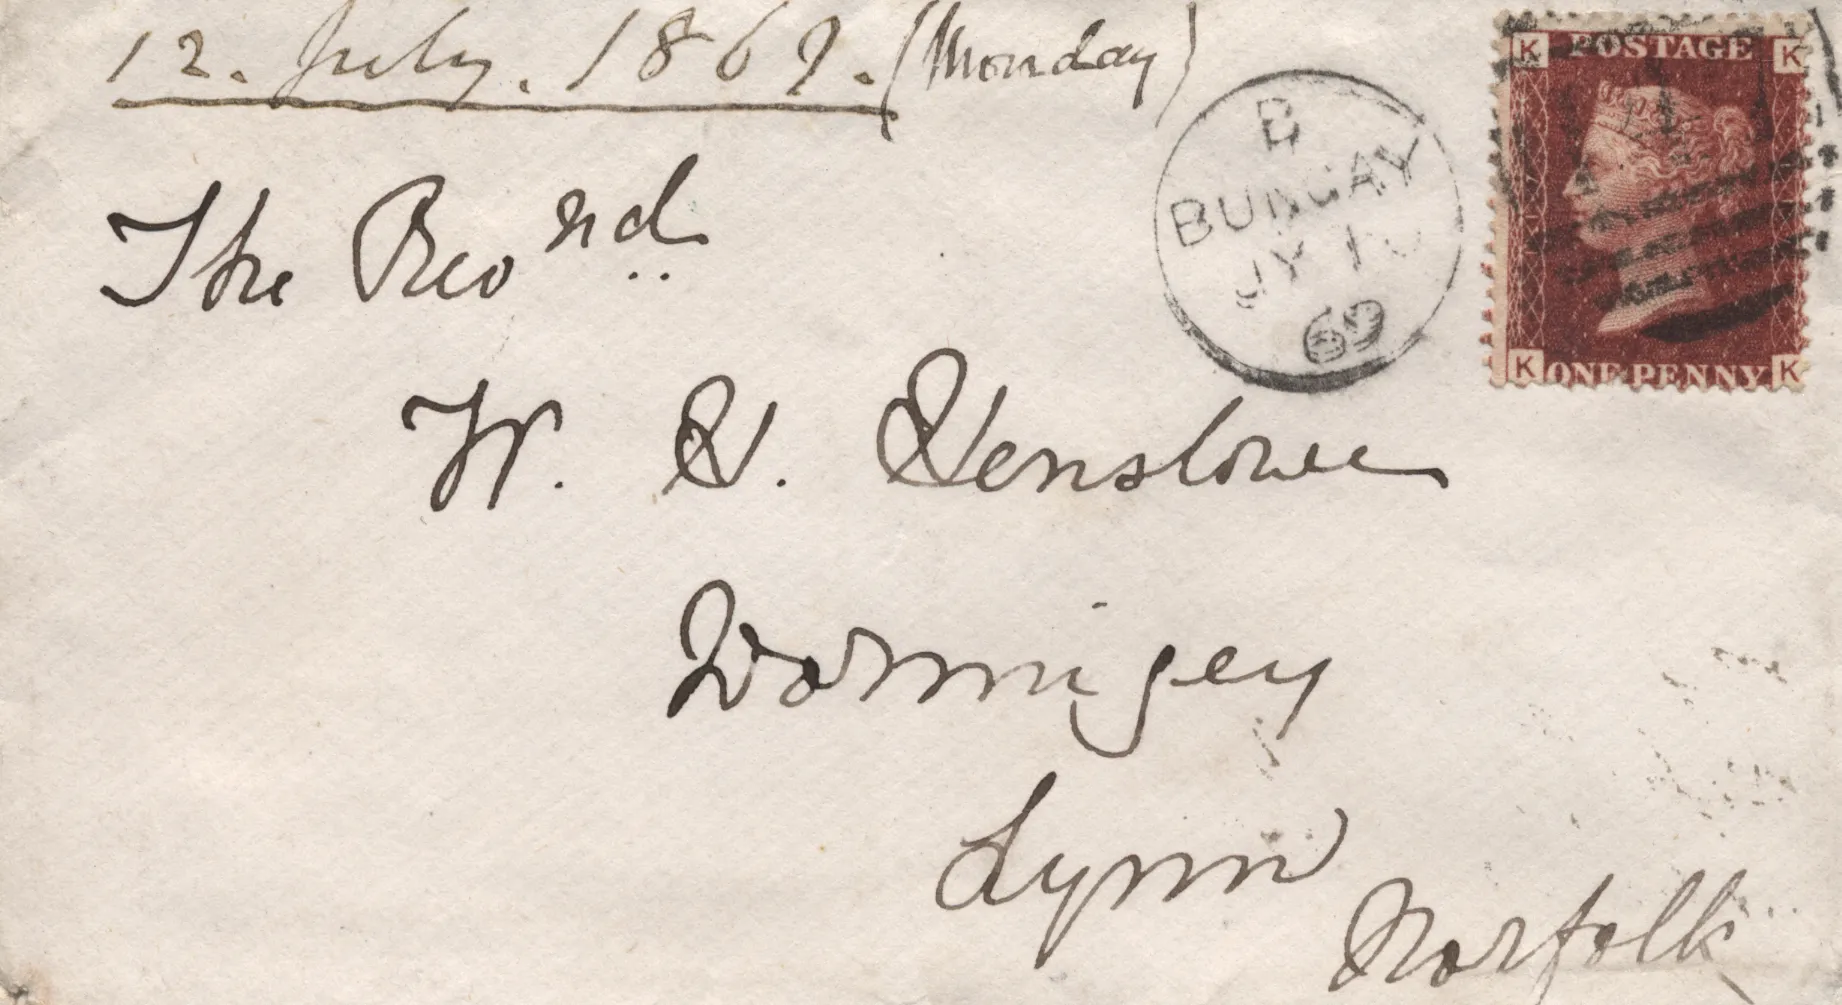 12. July. 1869. (Monday)
The Revnd
W. H. Henslowe
Wormigey
Lynn
Norfolk
B
BUNGAY
JY 10
69
K POSTAGE K
K ONE PENNY K